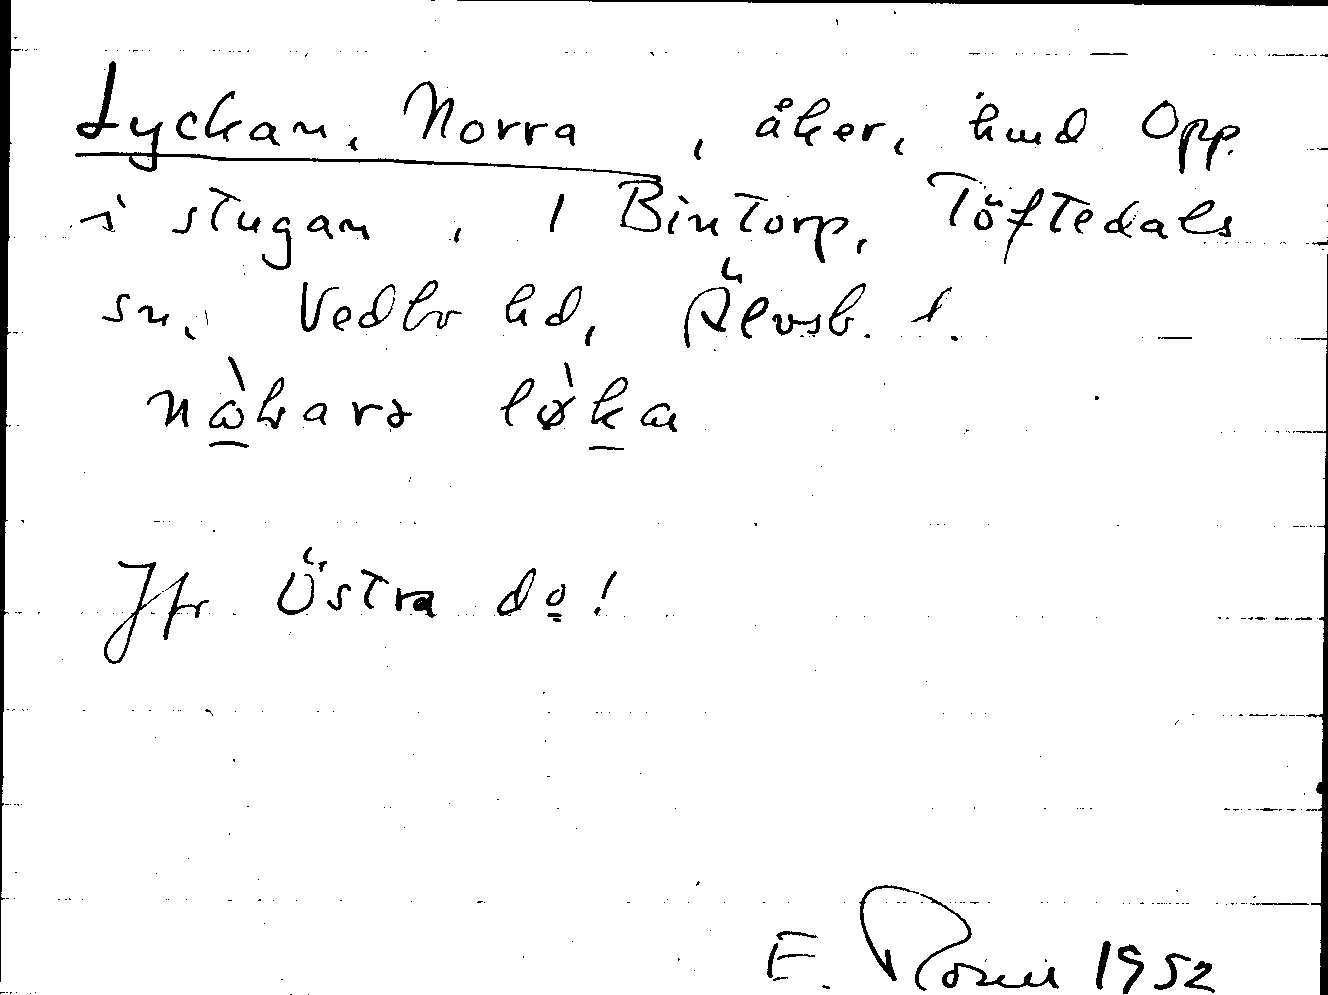 Lyckan, Norra, åker, hmd Opp
i stugan, 1 Bintorp, Töftedals
sn. Vedbo hd, Älvsb. l.
Jfr Östra do!
E. Rosell 1952